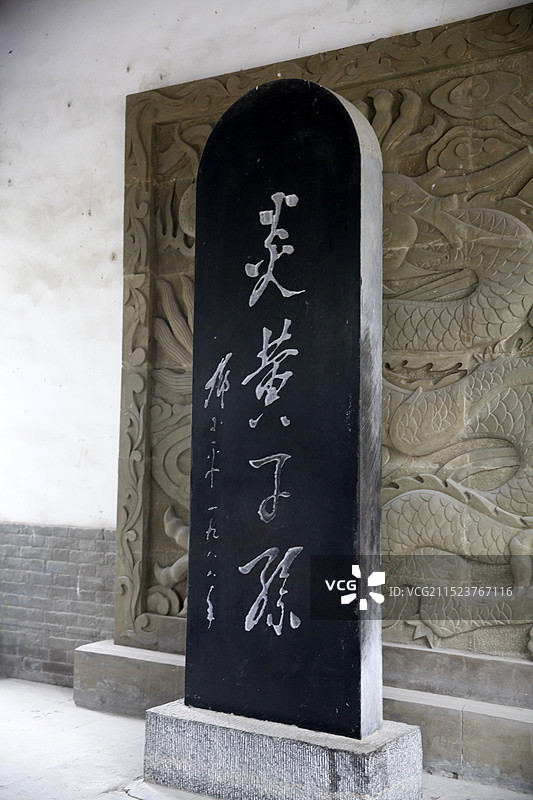 炎黄子孙
邓小平 一九八八年
VCG
VCG ID:VCG211523767116